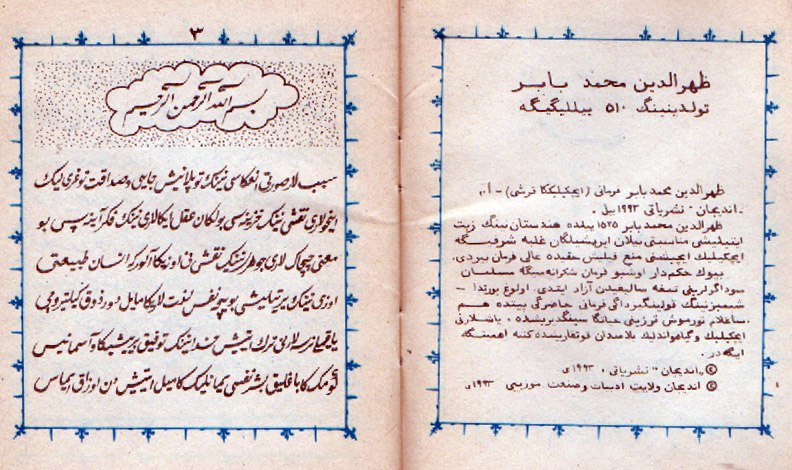 ظهرالدین محمد بابر
تولدینینگ ۵۱۰ ییللیگیگه
ظهرالدین محمد بابر فرمانی (ایچکیلیککا قرشی) – أ.,
.اندیجان" نشریاتی ۱۹۹۳ ییل.
ظهرالدین محمد بابر ۱۵۲۵ ییلده هندستان نینگ زیت
ایتیلیشی مناسبتی بیلان ایریشیلگان غلبه شرفیگه
ایچکیلیک ایچیشنی منع قیلیش حقیده عالی فرمان بیردی.
بیوک حکم‌دار اوشبو فرمان شکرانه‌سیگه مسلمان
سوداگرلرینی تمغه سالیغیدن آزاد ایتدی. اولوغ یورتدا –
شمیزنینگ قولینگیزداگی فرمانی حاضرگی پیتده هم
ساغلام تورموش ترزینی حیاتگا سینگدیریشده، یاشلارنی
ایچکیلیک و گیاهواندلیک بلاسدان قوتقاریشده کتته اهمیتگه
ایگه‌در.
© „اندیجان" نشریاتی، ۱۹۹۳ی
© اندیجان ولایت ادبیات و صنعت موزییی ۱۹۹۳ی
۳
بسم الله الرحمن الرحیم
سبب لار صورتی انعکاسی نینگ توپلانیش جایی و صداقت توغری لیک
نقشی نینگ سی بولگان عقل ایگالاری نینگ فکر آینه‌سی بو
معنی و چجاک لاری جوهر نینگ نقشی نی اوزیگا آلور که انسان طبیعتی
اوزی نینگ یرتیلیشی بویچه نفس لذت لاریگا مایل دور ذوق کیلتیروچی
لاری ترک ایتیش خدا نینگ توفیق بریشیگا و آسمانیی
کومک کا باغلیق بشر نفسی یمانلیک کا میل ایتیش دن اوزاق ایماس